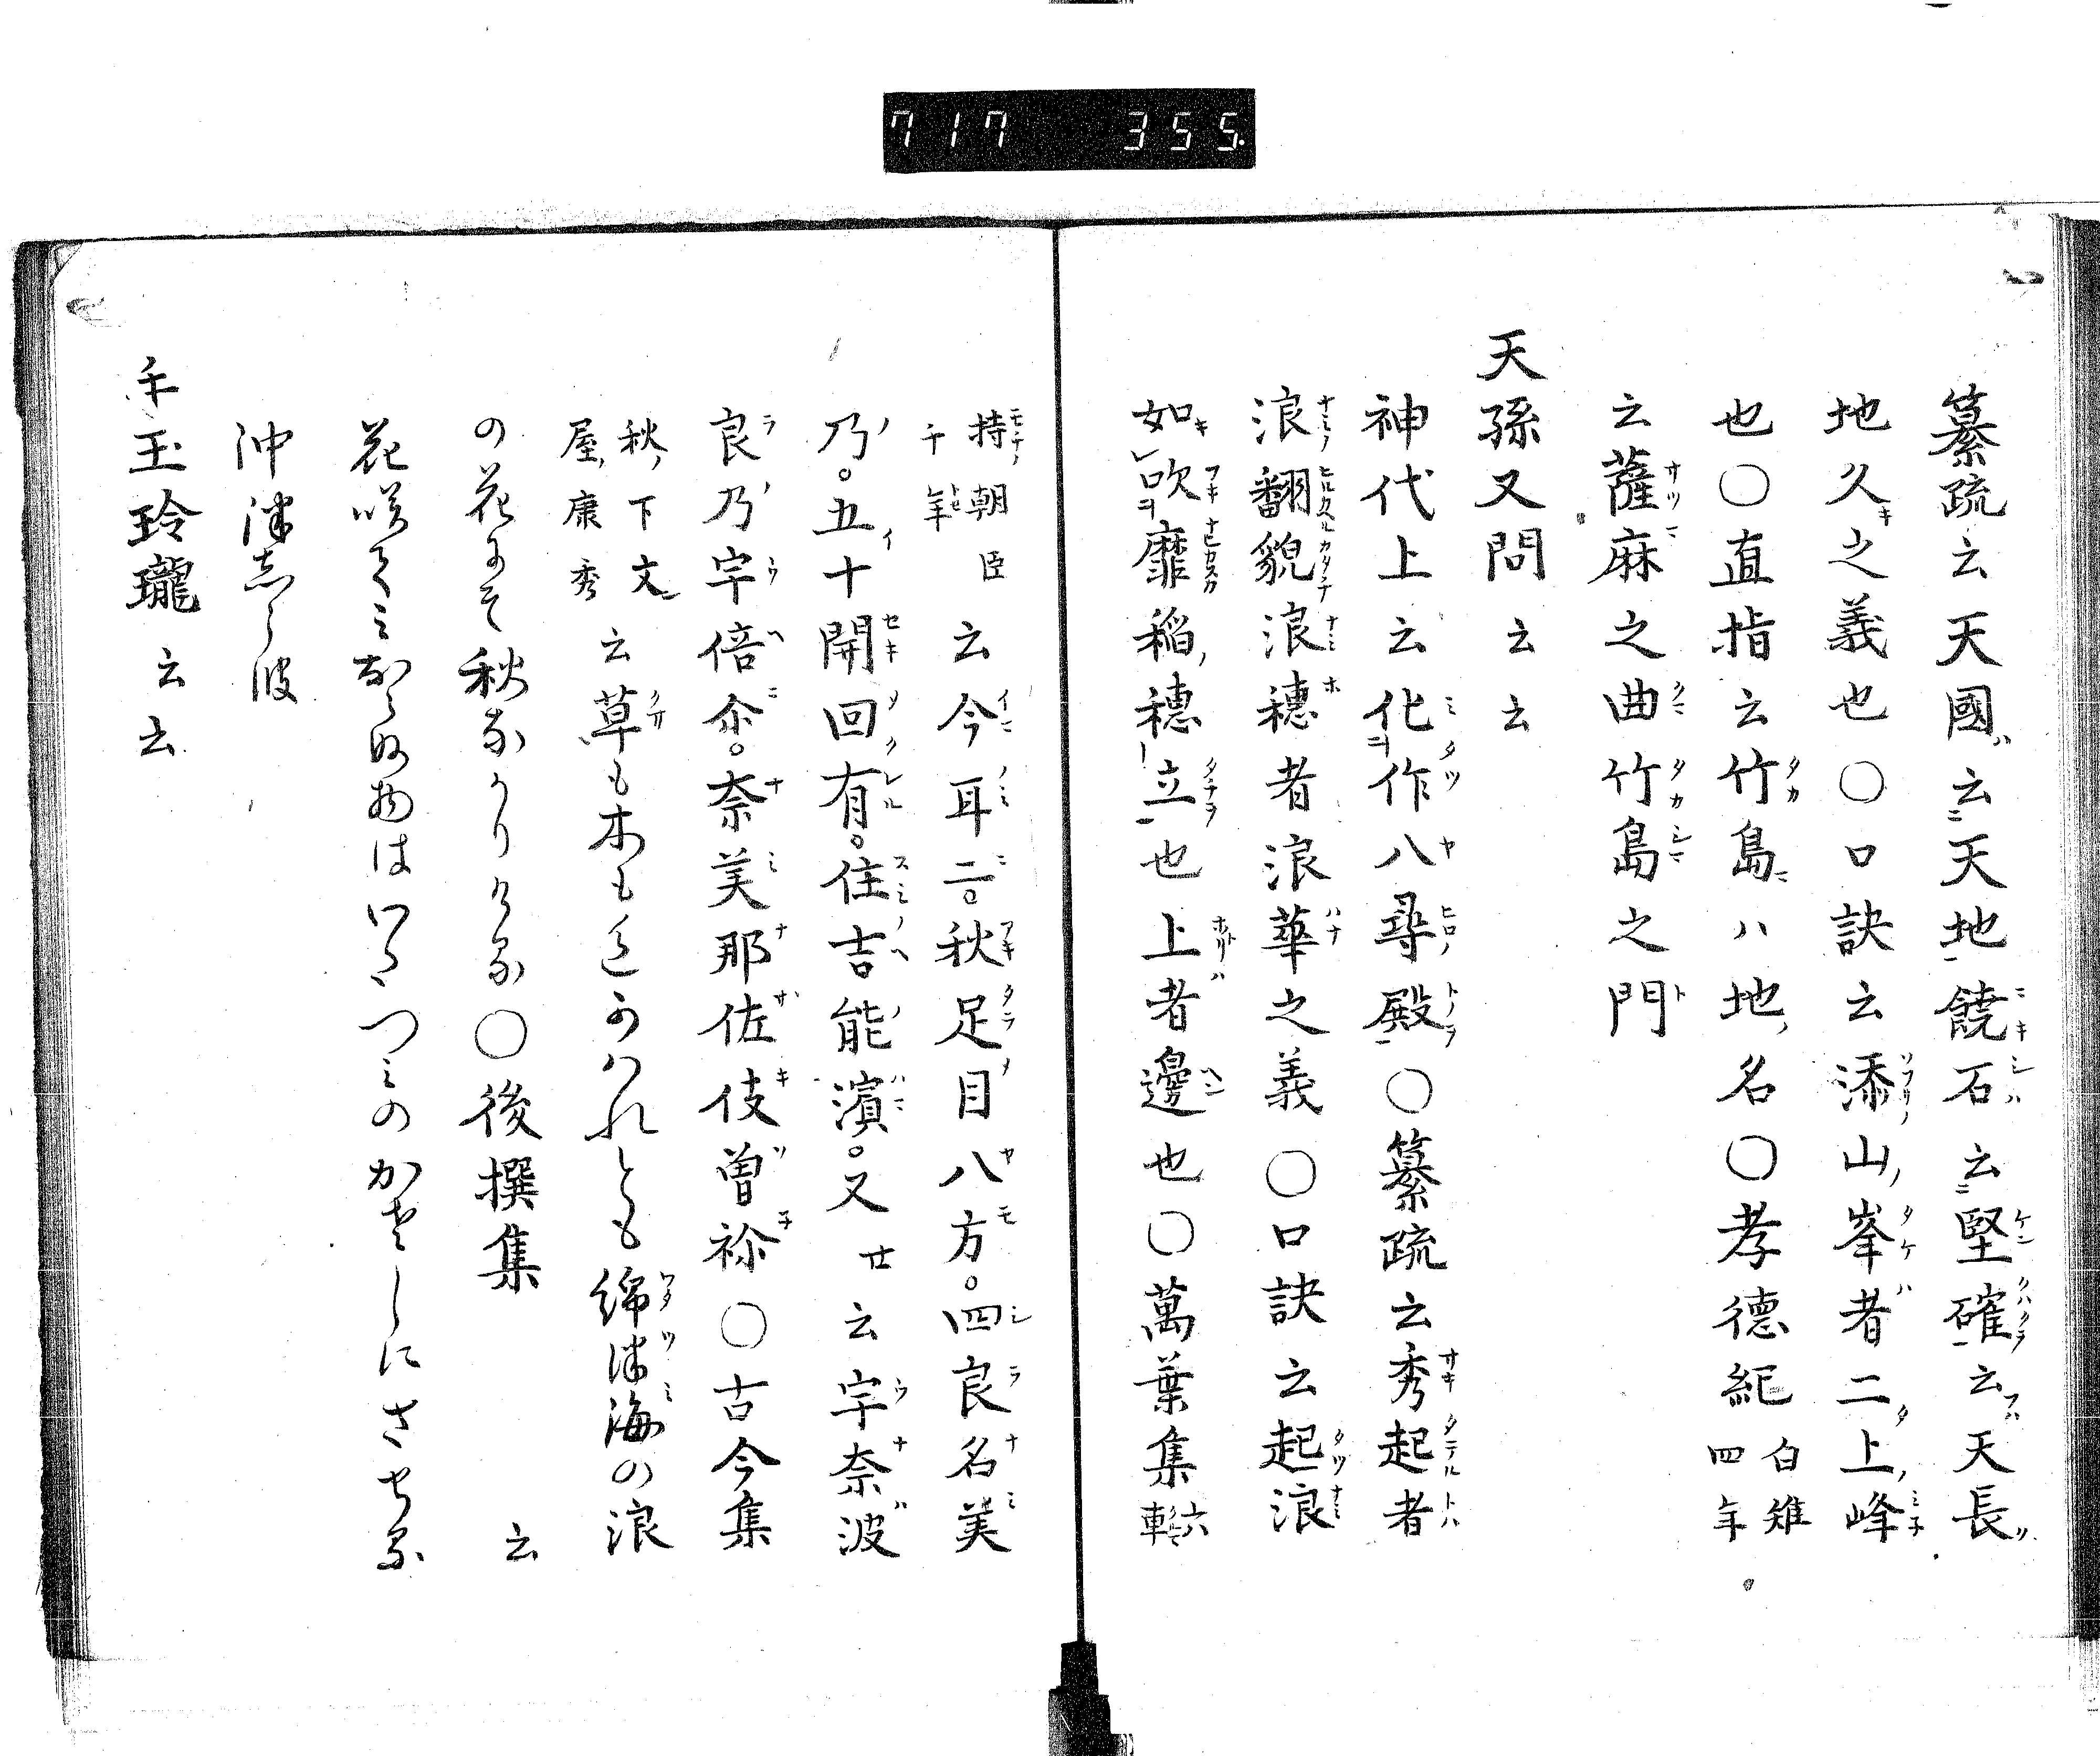 717 355.
纂疏云天國ハ云ニ天地一饒石云ニ堅確一云天長
地久之義也〇口訣云添山ノ峯者二上ノ峰
也〇直指云竹島ハ地ノ名〇孝德紀白雉四年
云薩麻之曲竹島之門
天孫又問云云
神代上云化作八尋殿〇纂疏云秀起者
浪翻貌浪穗者浪華之義〇口訣云起浪
如吹靡稲ノ穗立也上者邊也〇萬葉集六
持朝臣千年云今耳二。秋足目八方。四良名美
乃。五十開回有。住吉能濱。又廿云宇奈波
良乃宇倍尒。奈美那佐伎曾祢〇古今集
秋ノ下文屋ノ康秀云草も木も色かはれとも綿津海の浪
の花にそ秋なかりける〇後撰集云
花咲てみならぬ物はわたつみのかさしにさせる
沖津しら波
手玉玲瓏云云